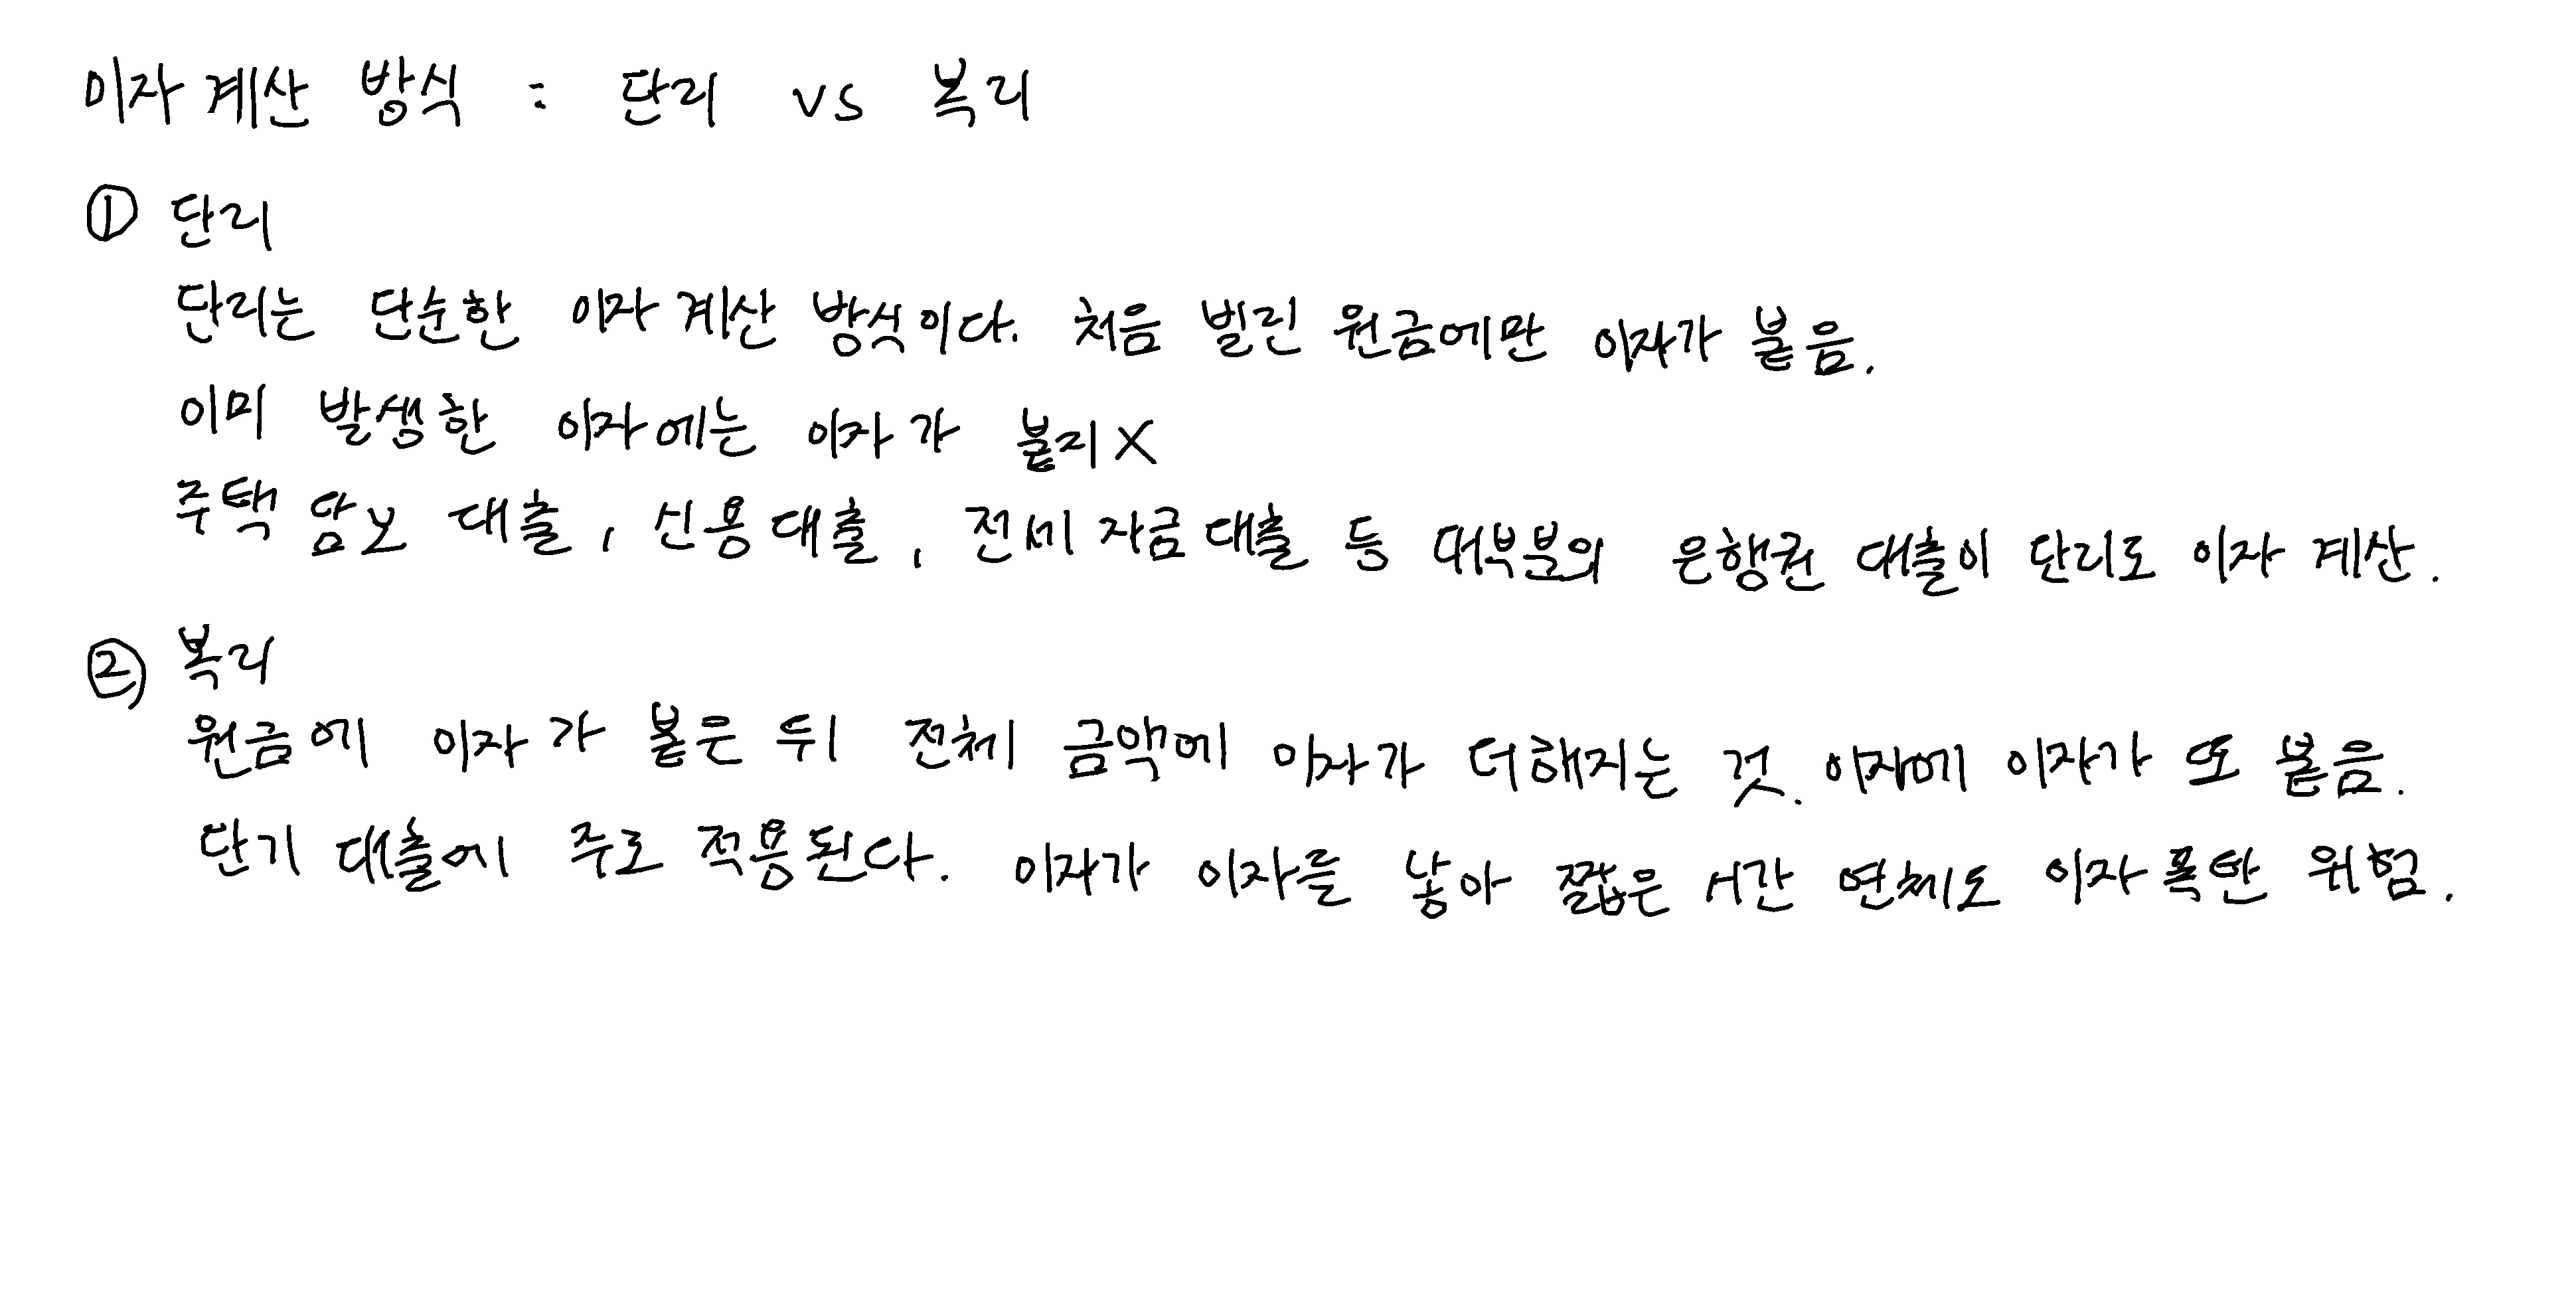 이자 계산 방식 : 단리 vs 복리
① 단리
단리는 단순한 이자 계산 방식이다. 처음 빌린 원금에만 이자가 붙음.
이미 발생한 이자에는 이자가 붙지 X
주택 담보 대출, 신용대출, 전세 자금 대출 등 대부분의 은행권 대출이 단리도 이자 계산.
② 복리
원금에 이자가 붙은 뒤 전체 금액에 이자가 더해지는 것. 이자에 이자가 또 붙음.
단기 대출에 주로 적용된다. 이자가 이자를 낳아 짧은 시간 연체도 이자 폭탄 위험.